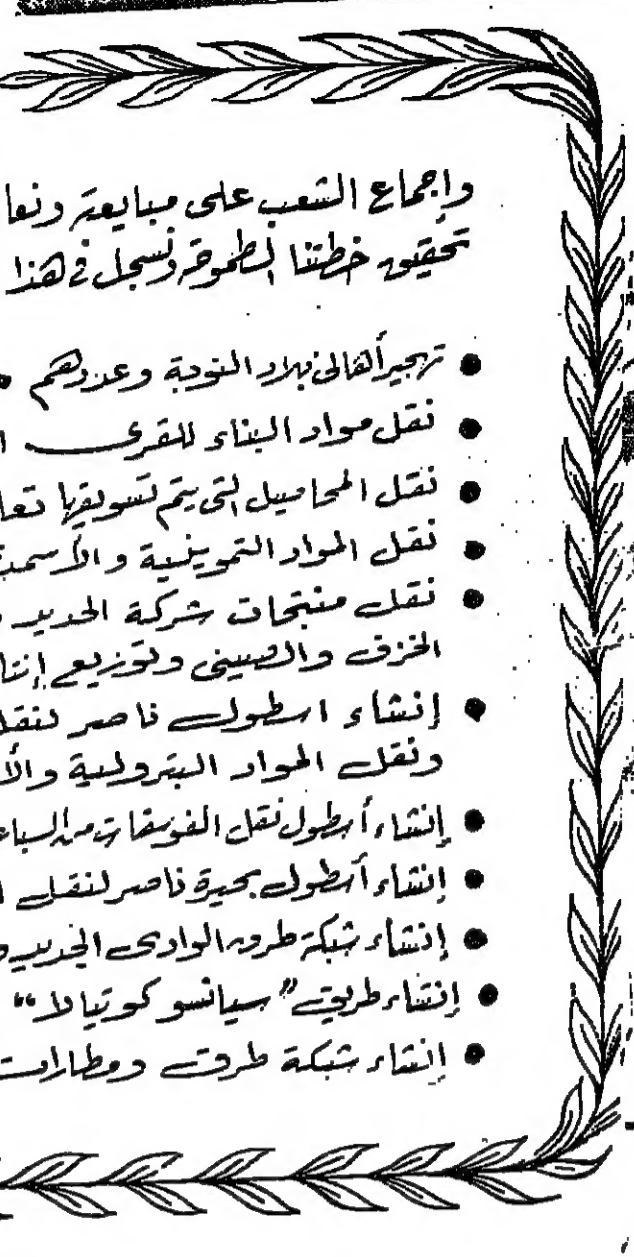 وإجماع الشعب على مبايعة ونعا
تحقيق خطتنا الطموحة ونسجل في هذا
● تهجير أهالى بلاد النوبة وعددهم
● نقل مواد البناء للقرى ا
● نقل المحاصيل التى يتم تسويقها تعا
● نقل المواد التموينية والأسمد
● نقل منتجات شركة الحديد
الخزف والصينى وتوزيع إنتا
● إنشاء اسطول ناصر لنقل
ونقل المواد البترولية والأ
● إنشاء أسطول نقل الفوسفات من السبا
● إنشاء أسطول بحيرة ناصر لنقل ا
● إنشاء شبكة طرق الوادى الجديد
● إنشاء طريق "سيانسو كوتيالا"
● إنشاء شبكة طرق ومطارات